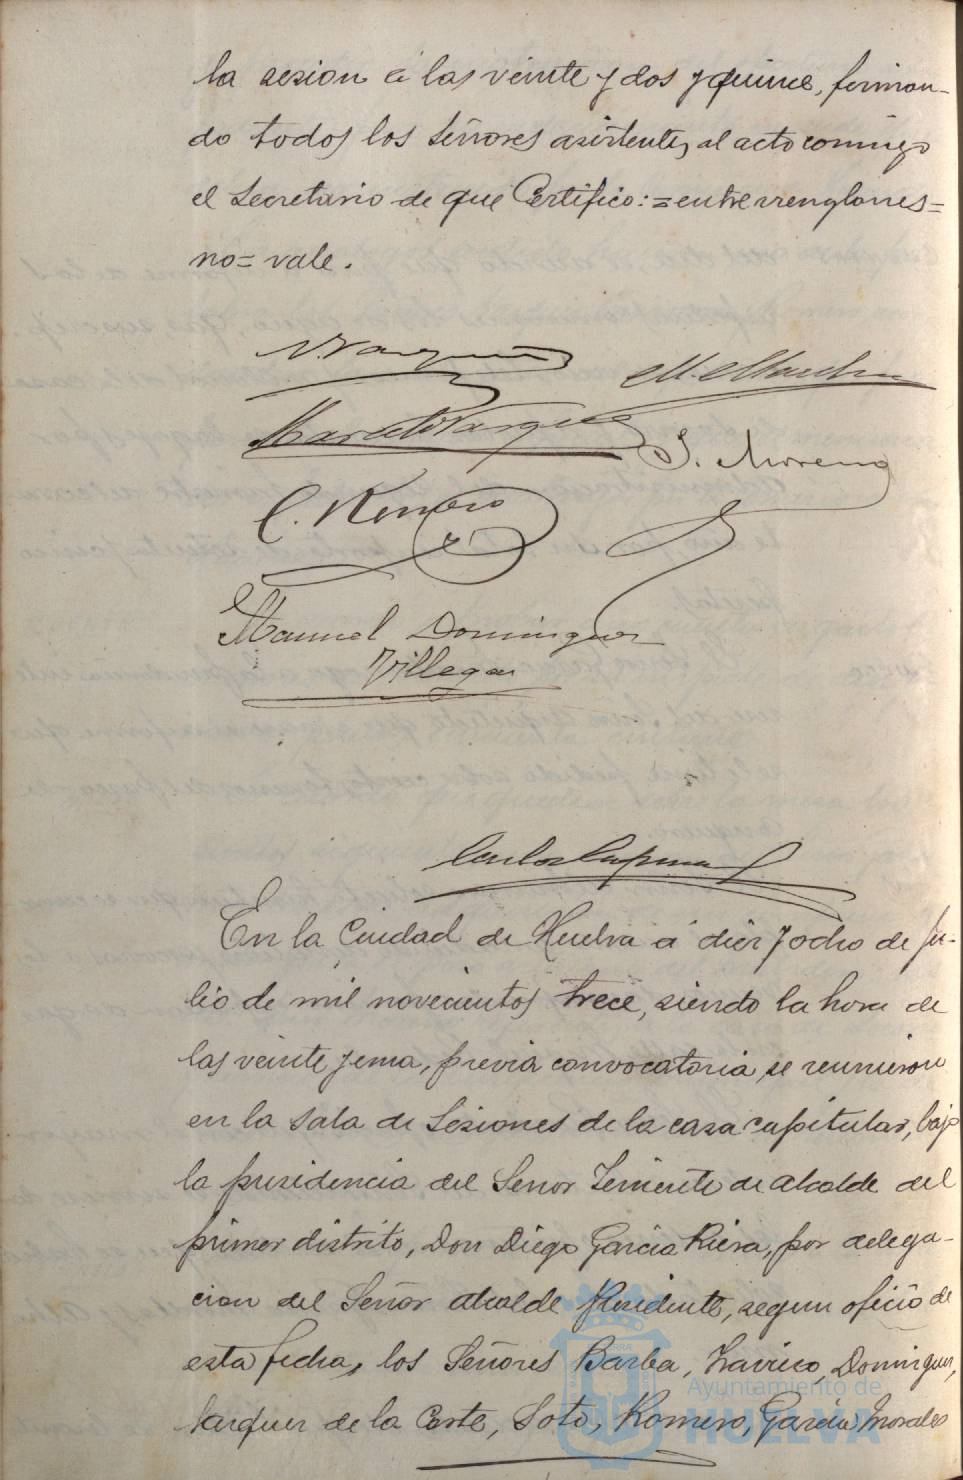 la sesion á las veinte y dos y quince, firman-
do todos los Señores asistentes al acto conmigo
el Secretario de que Certifico: = entre renglones =
no = vale.
V. Vazquez
M. Martin
Marcelo Vazquez
J. Moreno
C. Romero
Manuel Dominguez
Villegas
Carlos
En la Ciudad de Huelva á diez y ocho de Ju-
lio de mil novecientos trece, siendo la hora de
las veinte y una, previa convocatoria, se reunieron
en la Sala de Sesiones de la casa capitular, bajo
la presidencia del Señor Teniente de alcalde del
primer distrito, Don Diego Garcia Riera, por delega-
cion del Señor alcalde Presidente, segun oficio de
esta fecha, los Señores Barba, Dominguez,
Vazquez de la Corte, Soto, Romero, Garcia Morales
Ayuntamiento de
HUELVA